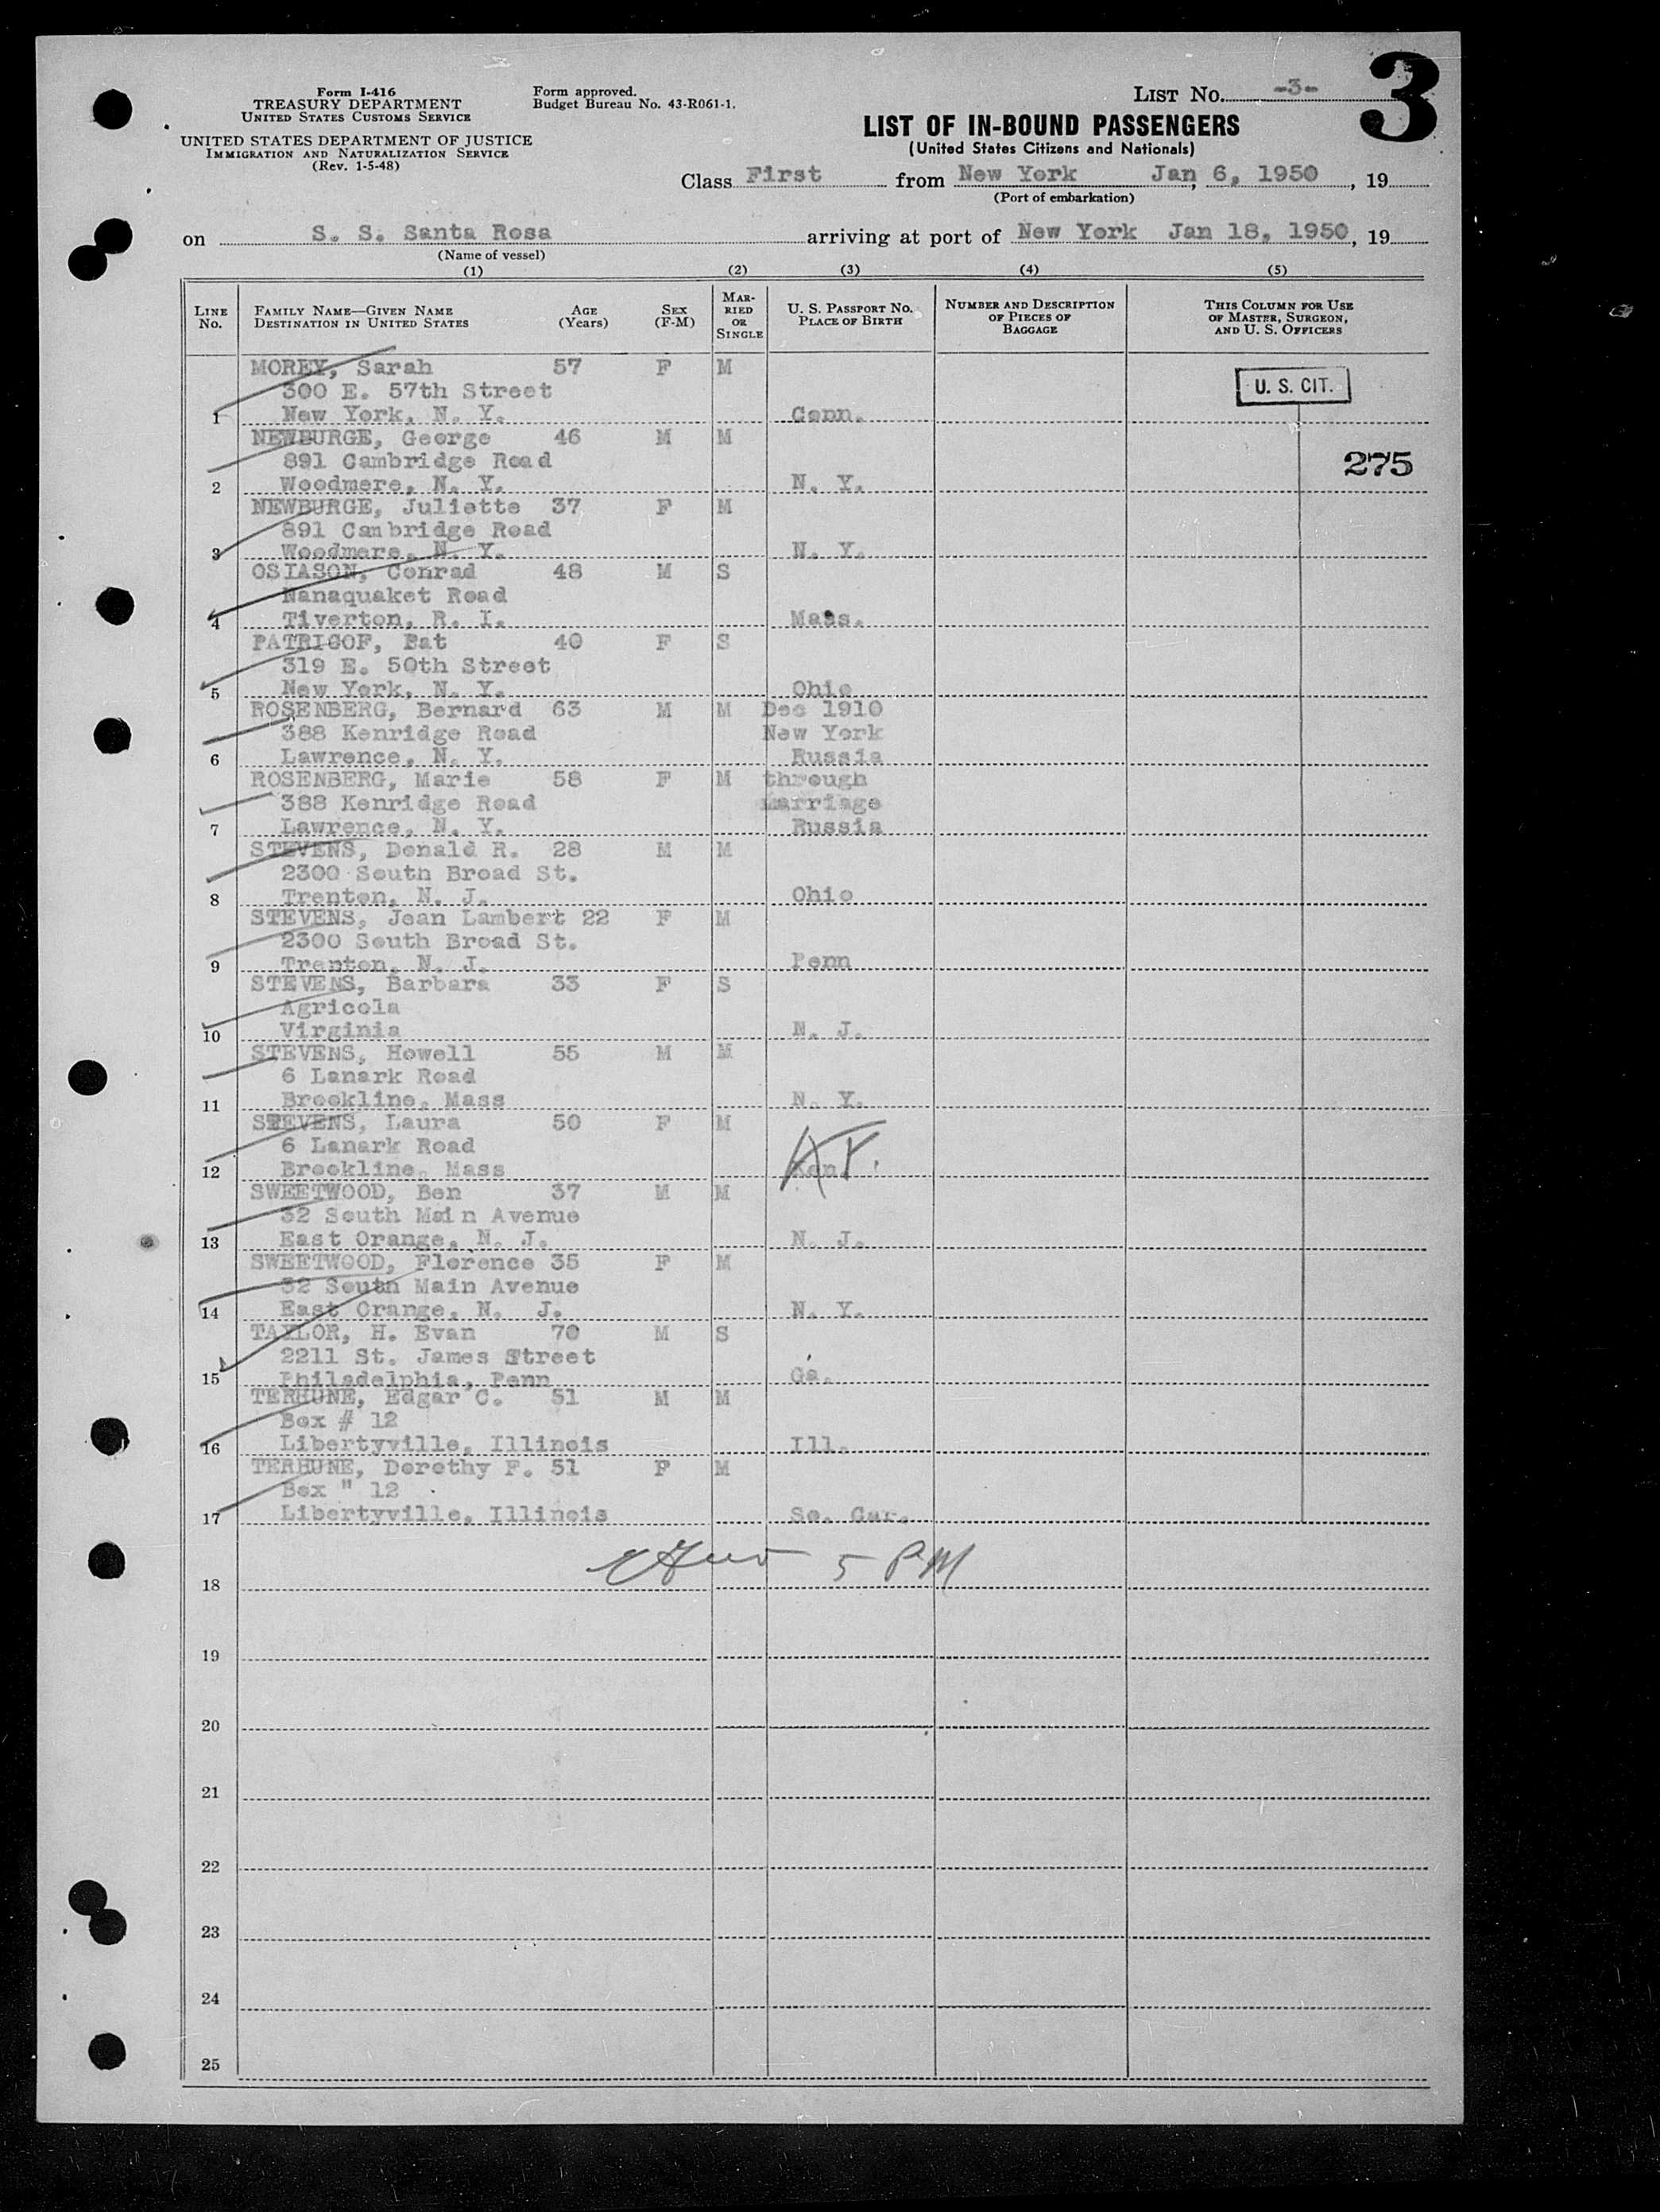 3
Form I-416
TREASURY DEPARTMENT
UNITED STATES CUSTOMS SERVICE
UNITED STATES DEPARTMENT OF JUSTICE
IMMIGRATION AND NATURALIZATION SERVICE
(Rev. 1-5-48)
Form approved.
Budget Bureau No. 43-R061-1.
LIST No. -3-
LIST OF IN-BOUND PASSENGERS
(United States Citizens and Nationals)
Class First from New York Jan 6, 1950, 19
(Port of embarkation)
on S. S. Santa Rosa arriving at port of New York Jan 18, 1950, 19
(Name of vessel)
(1) (2) (3) (4) (5)
LINE No. FAMILY NAME—GIVEN NAME DESTINATION IN UNITED STATES AGE (Years) SEX (F-M) MARRIED OR SINGLE U. S. PASSPORT NO. PLACE OF BIRTH NUMBER AND DESCRIPTION OF PIECES OF BAGGAGE THIS COLUMN FOR USE OF MASTER, SURGEON, AND U. S. OFFICERS
MOREY, Sarah 57 F M
300 E. 57th Street U. S. CIT.
1 New York, N. Y. Conn.
NEWBURGE, George 46 M M
891 Cambridge Road 275
2 Woodmere, N. Y. N. Y.
NEWBURGE, Juliette 37 F M
891 Cambridge Road
3 Woodmere, N. Y. N. Y.
OSIASON, Conrad 48 M S
Nanaquaket Road
4 Tiverton, R. I. Mass.
PATRICOF, Pat 40 F S
319 E. 50th Street
5 New York, N. Y. Ohio
ROSENBERG, Bernard 63 M M Dec 1910
388 Kenridge Road New York
6 Lawrence, N. Y. Russia
ROSENBERG, Marie 58 F M through
388 Kenridge Road marriage
7 Lawrence, N. Y. Russia
STEVENS, Donald R. 28 M M
2300 South Broad St.
8 Trenton, N. J. Ohio
STEVENS, Jean Lambert 22 F M
2300 South Broad St.
9 Trenton, N. J. Penn
STEVENS, Barbara 33 F S
Agricola
10 Virginia N. J.
STEVENS, Howell 55 M M
6 Lanark Road
11 Brookline, Mass N. Y.
STEVENS, Laura 50 F M
6 Lanark Road
12 Brookline, Mass Kan.
SWEETWOOD, Ben 37 M M
32 South Main Avenue
13 East Orange, N. J. N. J.
SWEETWOOD, Florence 35 F M
32 South Main Avenue
14 East Orange, N. J. N. Y.
TAYLOR, H. Evan 70 M S
2211 St. James Street
15 Philadelphia, Penn Ga.
TERHUNE, Edgar C. 51 M M
Box # 12
16 Libertyville, Illinois Ill.
TERHUNE, Dorothy F. 51 F M
Box " 12
17 Libertyville, Illinois So. Car.
5 PM
18
19
20
21
22
23
24
25